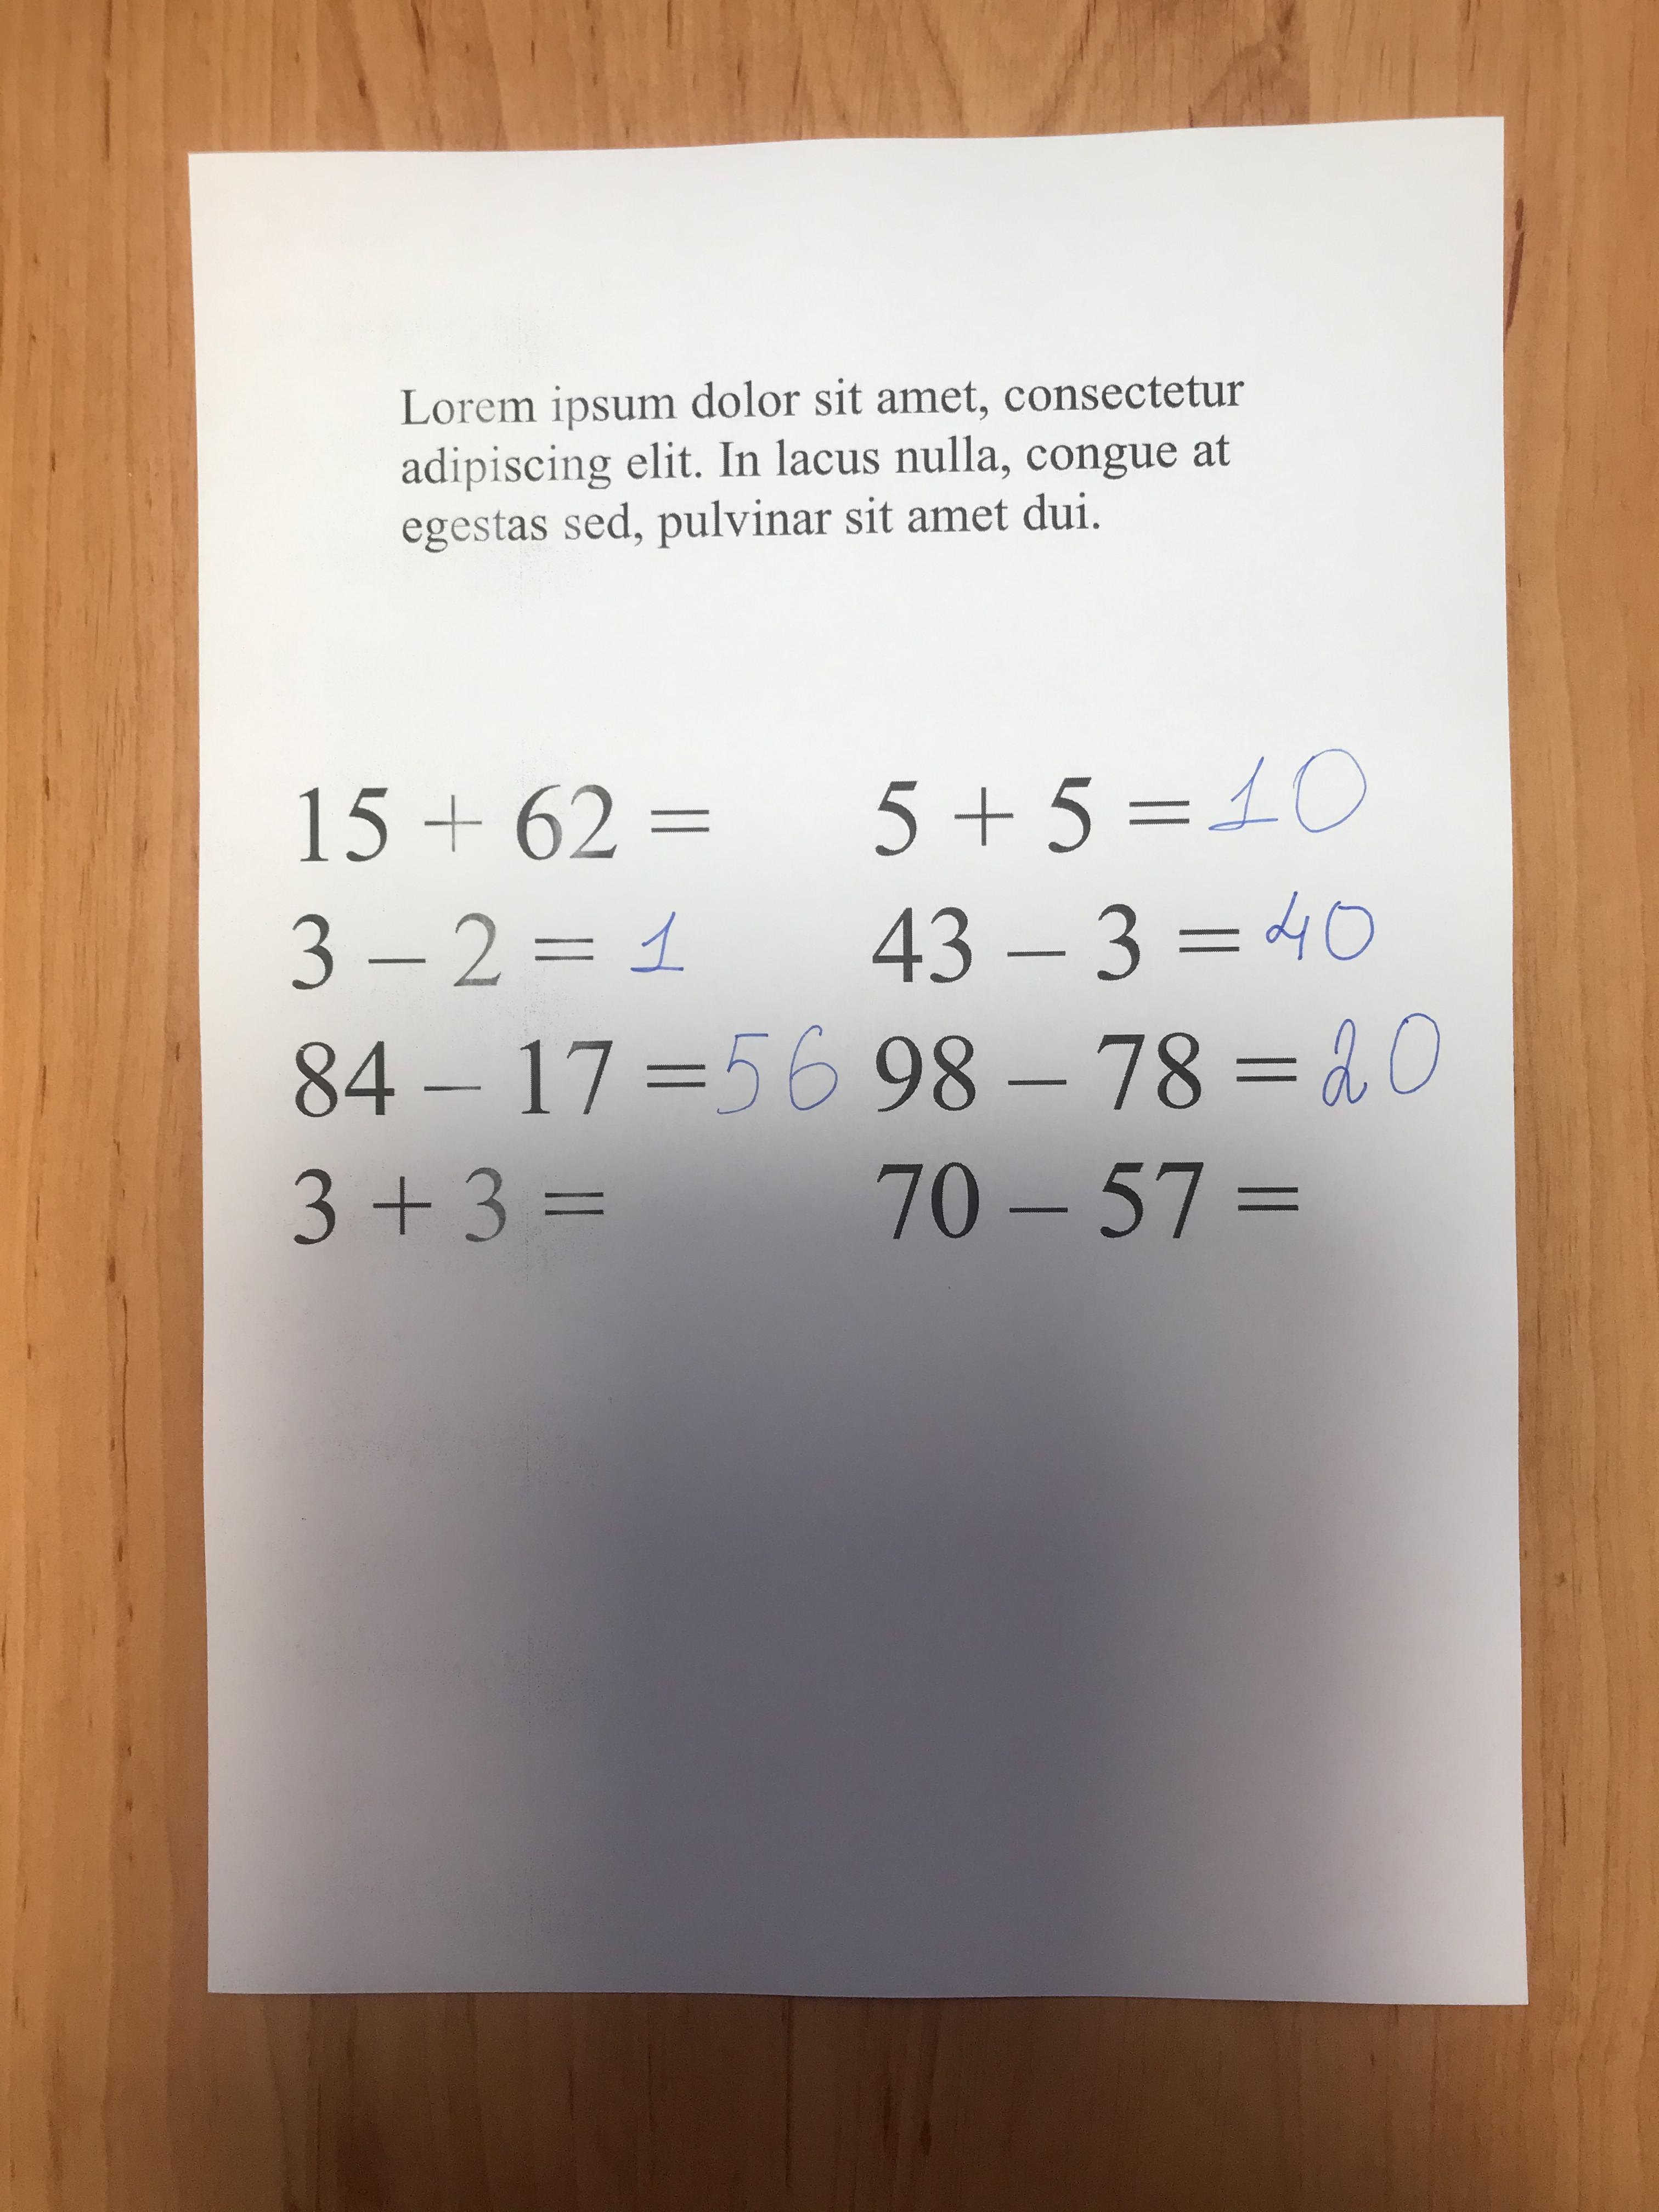 Lorem ipsum dolor sit amet, consectetur
adipiscing elit. In lacus nulla, congue at
egestas sed, pulvinar sit amet dui.
15 + 62 =
3 – 2 = 1
84 – 17 = 56
3 + 3 =
5 + 5 = 10
43 – 3 = 40
98 – 78 = 20
70 – 57 =